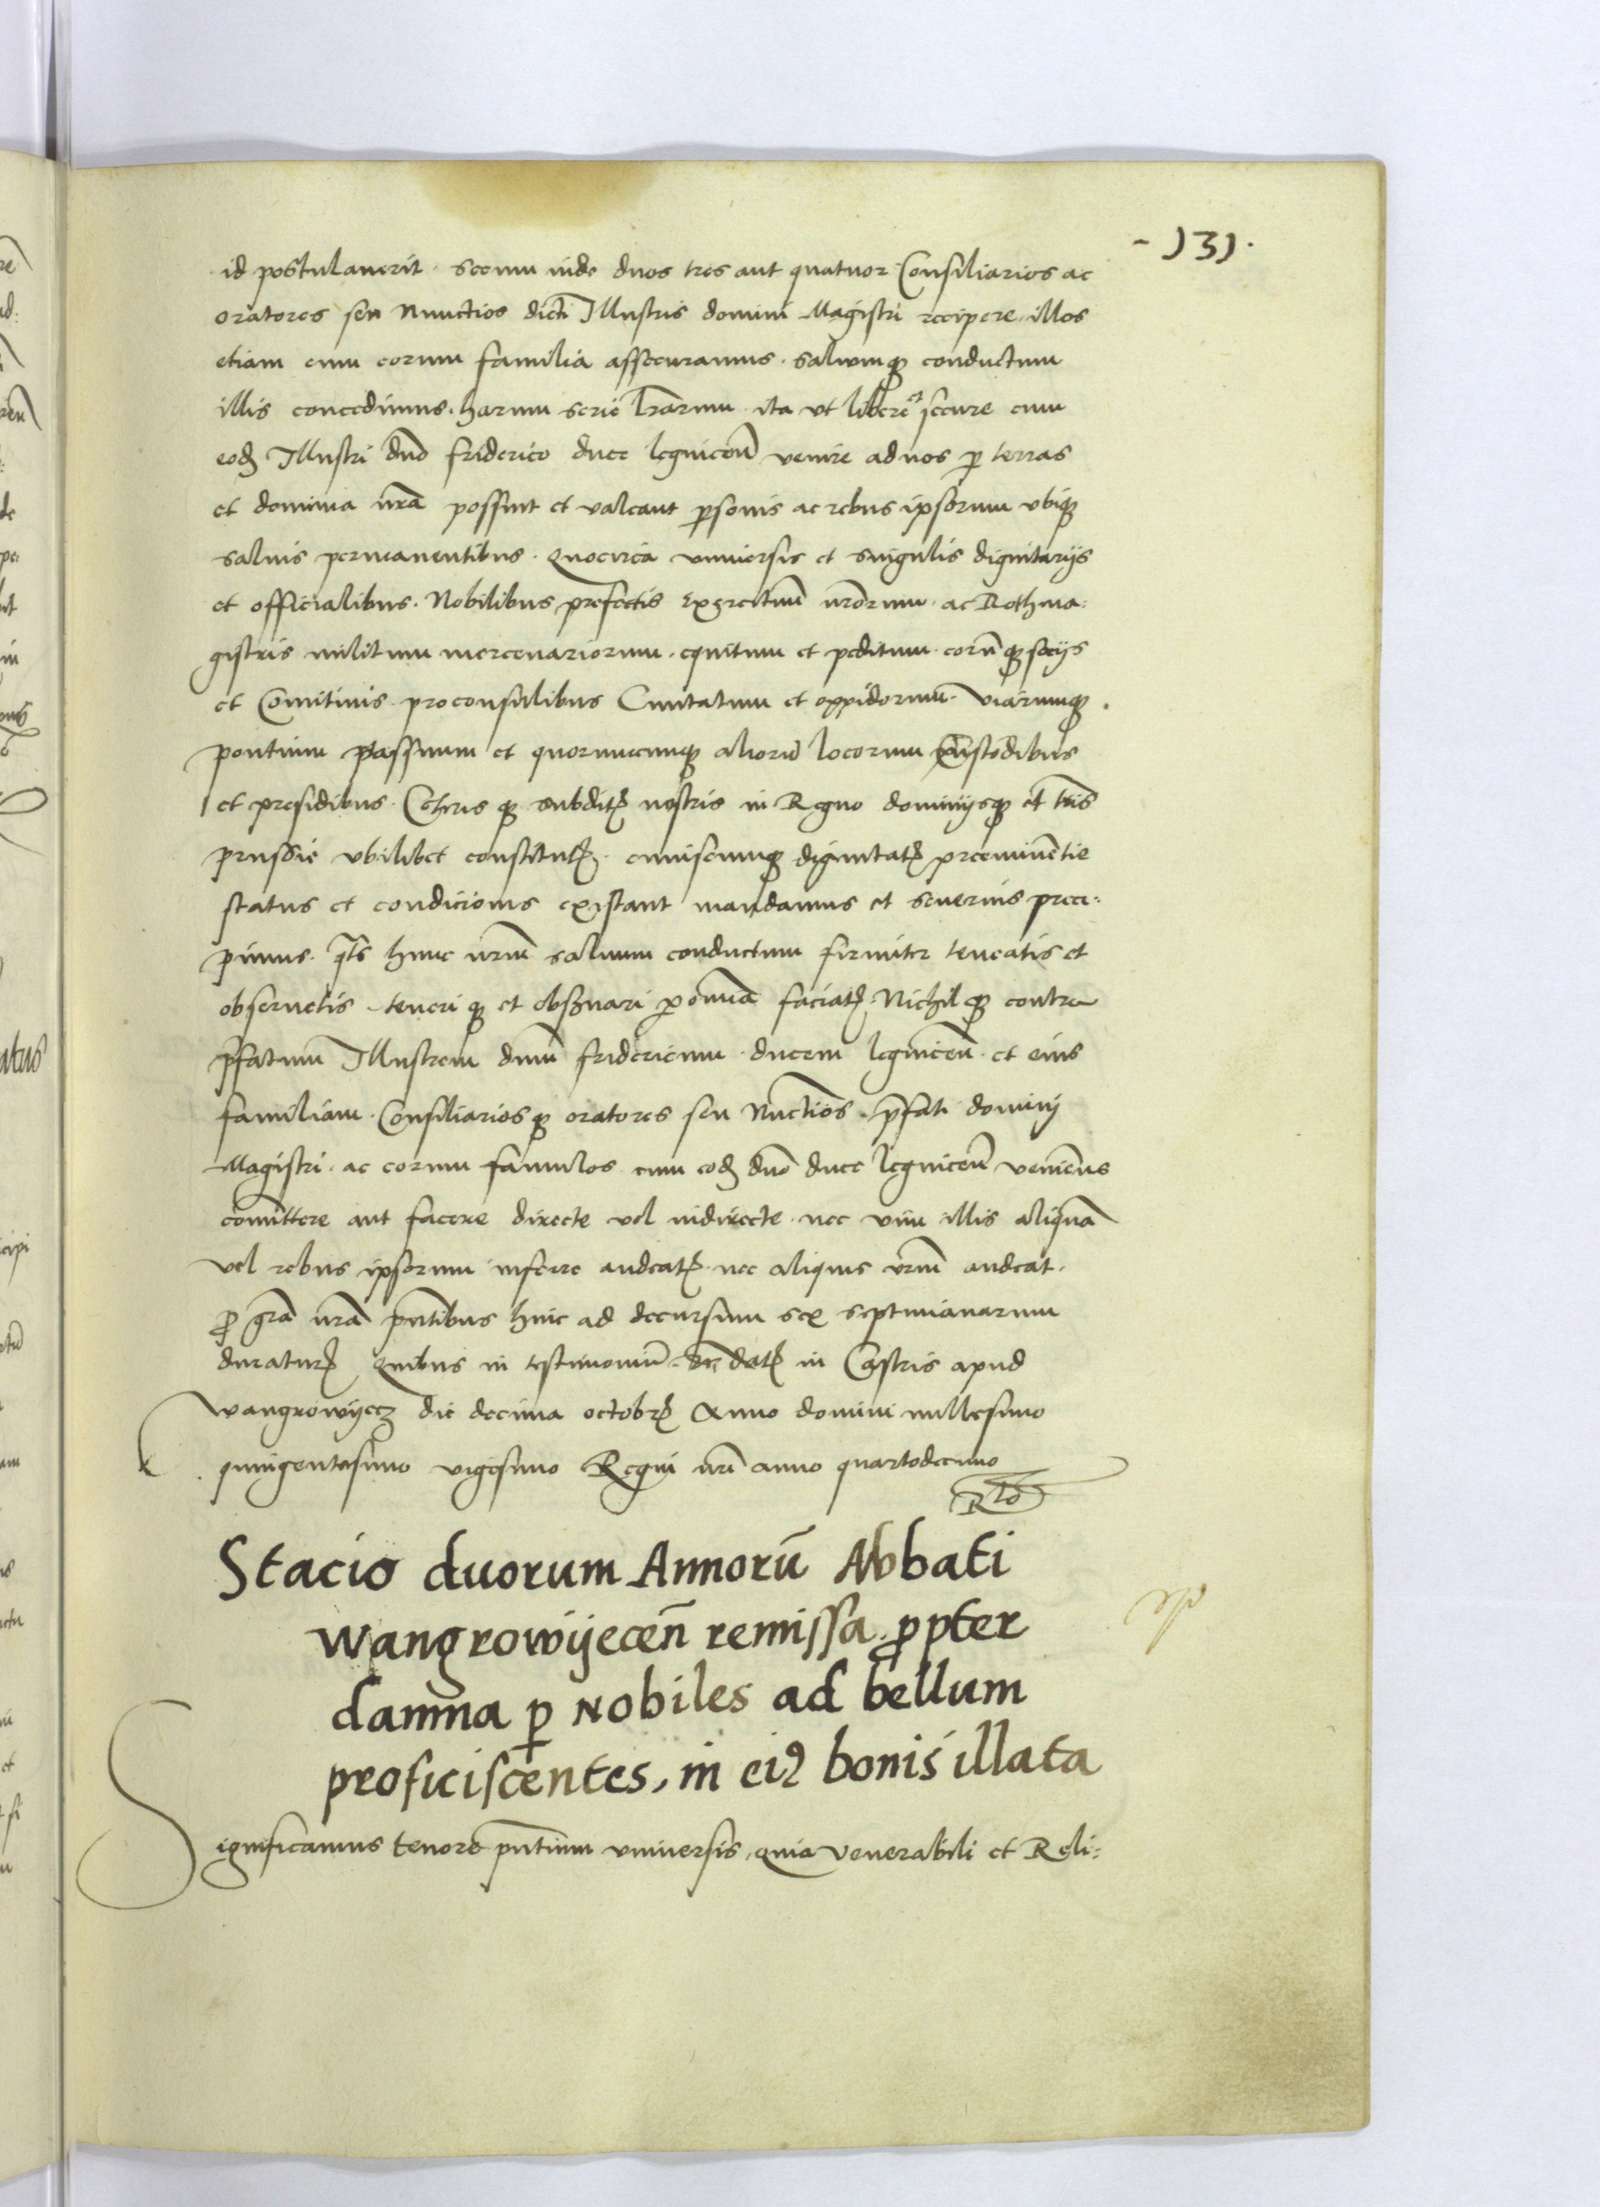 - 131 .
id postulaverit . secum inde duos tres aut quatuor Consiliarios ac
oratores seu Nunctios dicti Illustris domini Magistri recipere . illos
etiam cum eorum familia assecuramus . salvumq̃ conductum
illis concedimus . harum serie lrãrum . ita vt libere et secure cum
eodẽ Illustri dño friderico duce legniceñ venire ad nos p̱ terras
et dominia nr̃a possint et valeant p̱sonis ac rebus ipsorum vbiq̃
salvis permanentibus . Quocirca vniversis et singulis dignitarijs
et officialibus . Nobilibus prefectis Exercituũ nr̃orum . ac Rothma:
gistris militum mercenariorum . equitum et peditum . eorũq̃ socijs
et Comitivis . proconsulibus Civitatum et oppidorum . Viarumq̃ .
pontium passuum et quorumcumq̃ aliorũ locorum Custodibus
et presidibus . Ceteris q̃ subditꝭ nostris in Regno dominijsq̃ et tr̃is
prussie vbilibet constitutꝭ . cuiuscumq̃ dignitatꝭ preeminẽtie
status et condicionis existant mandamus et severius preci:
pimus . qt̃s hunc nr̃um salvum conductum firmiter teneatis et
observetis . teneri q̃ et obs̃vari p̱ om̃ia faciatꝭ . Nichil q̃ contra
p̃fatum Illustrem dñum fridericum . ducem legniceñ . et eius
familiam . Consiliarios q̃ oratores seu Nũctios . p̃fati dominj
Magistri . ac eorum famulos cum eodẽ dño duce legniceñ venieñs
com̃ittere aut facere directe vel indirecte . nec vim illis aliquã
vel rebus ipsorum inferre audeatꝭ . nec aliquis vr̃um audeat .
ꝓ gr̃a nr̃a pñtibus hinc ad decursum sex septimanarum
duraturꝭ Quibus in testimoniũ datꝭ in Castris apud
wangrowyecz die decima octobrꝭ Anno domini millesimo
quingentesimo vigesimo Regni nr̃i anno quartodecimo
Stacio duorum Annorũ Abbati
wangrowijeceñ remissa . ꝓpter
damna p̱ Nobiles ad bellum
proficiscentes, in eiꝰ bonis illata
Significamus tenore pñtium vniversis, quia venerabili et Reli: